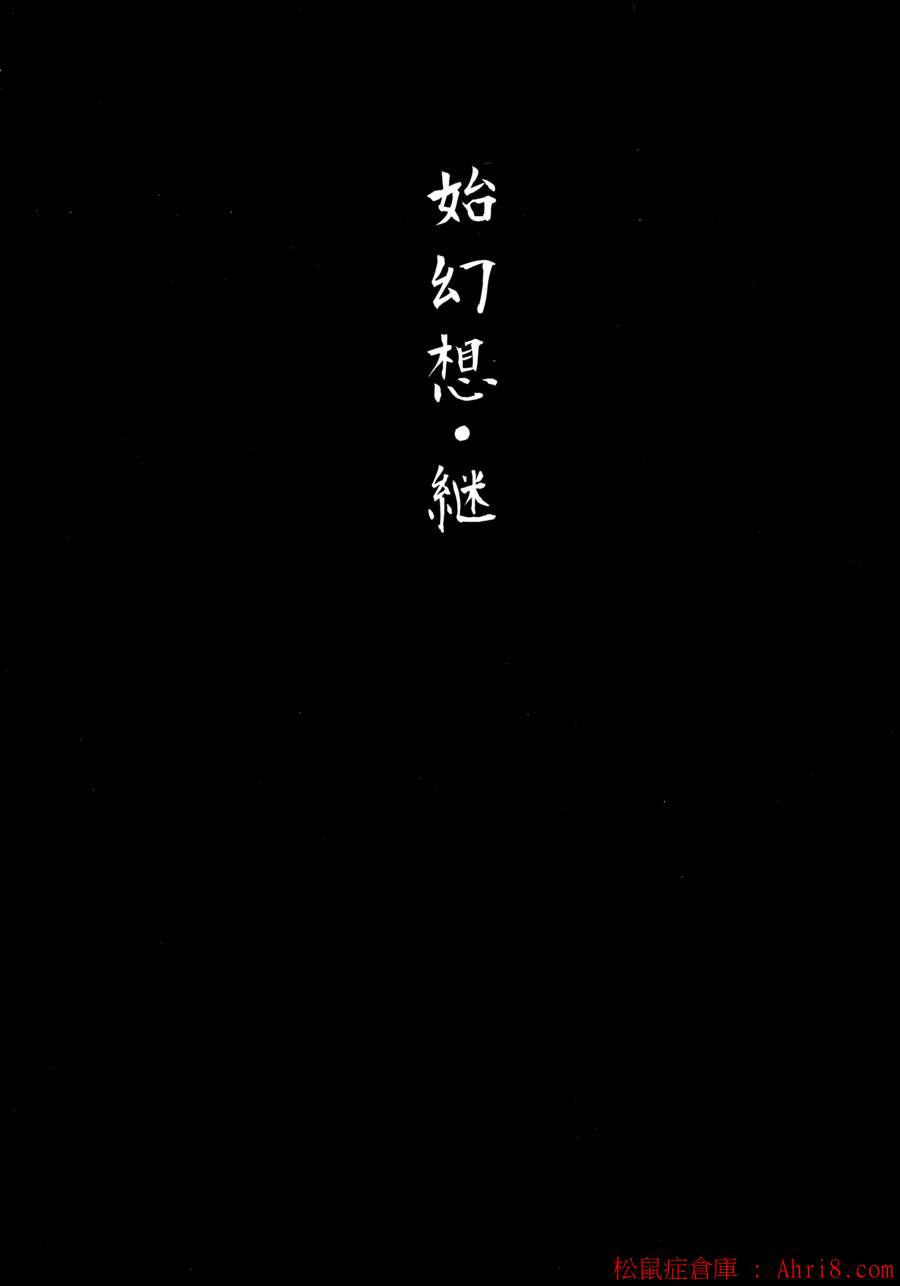 始幻想・継
松鼠症倉庫 : Ahri8.com